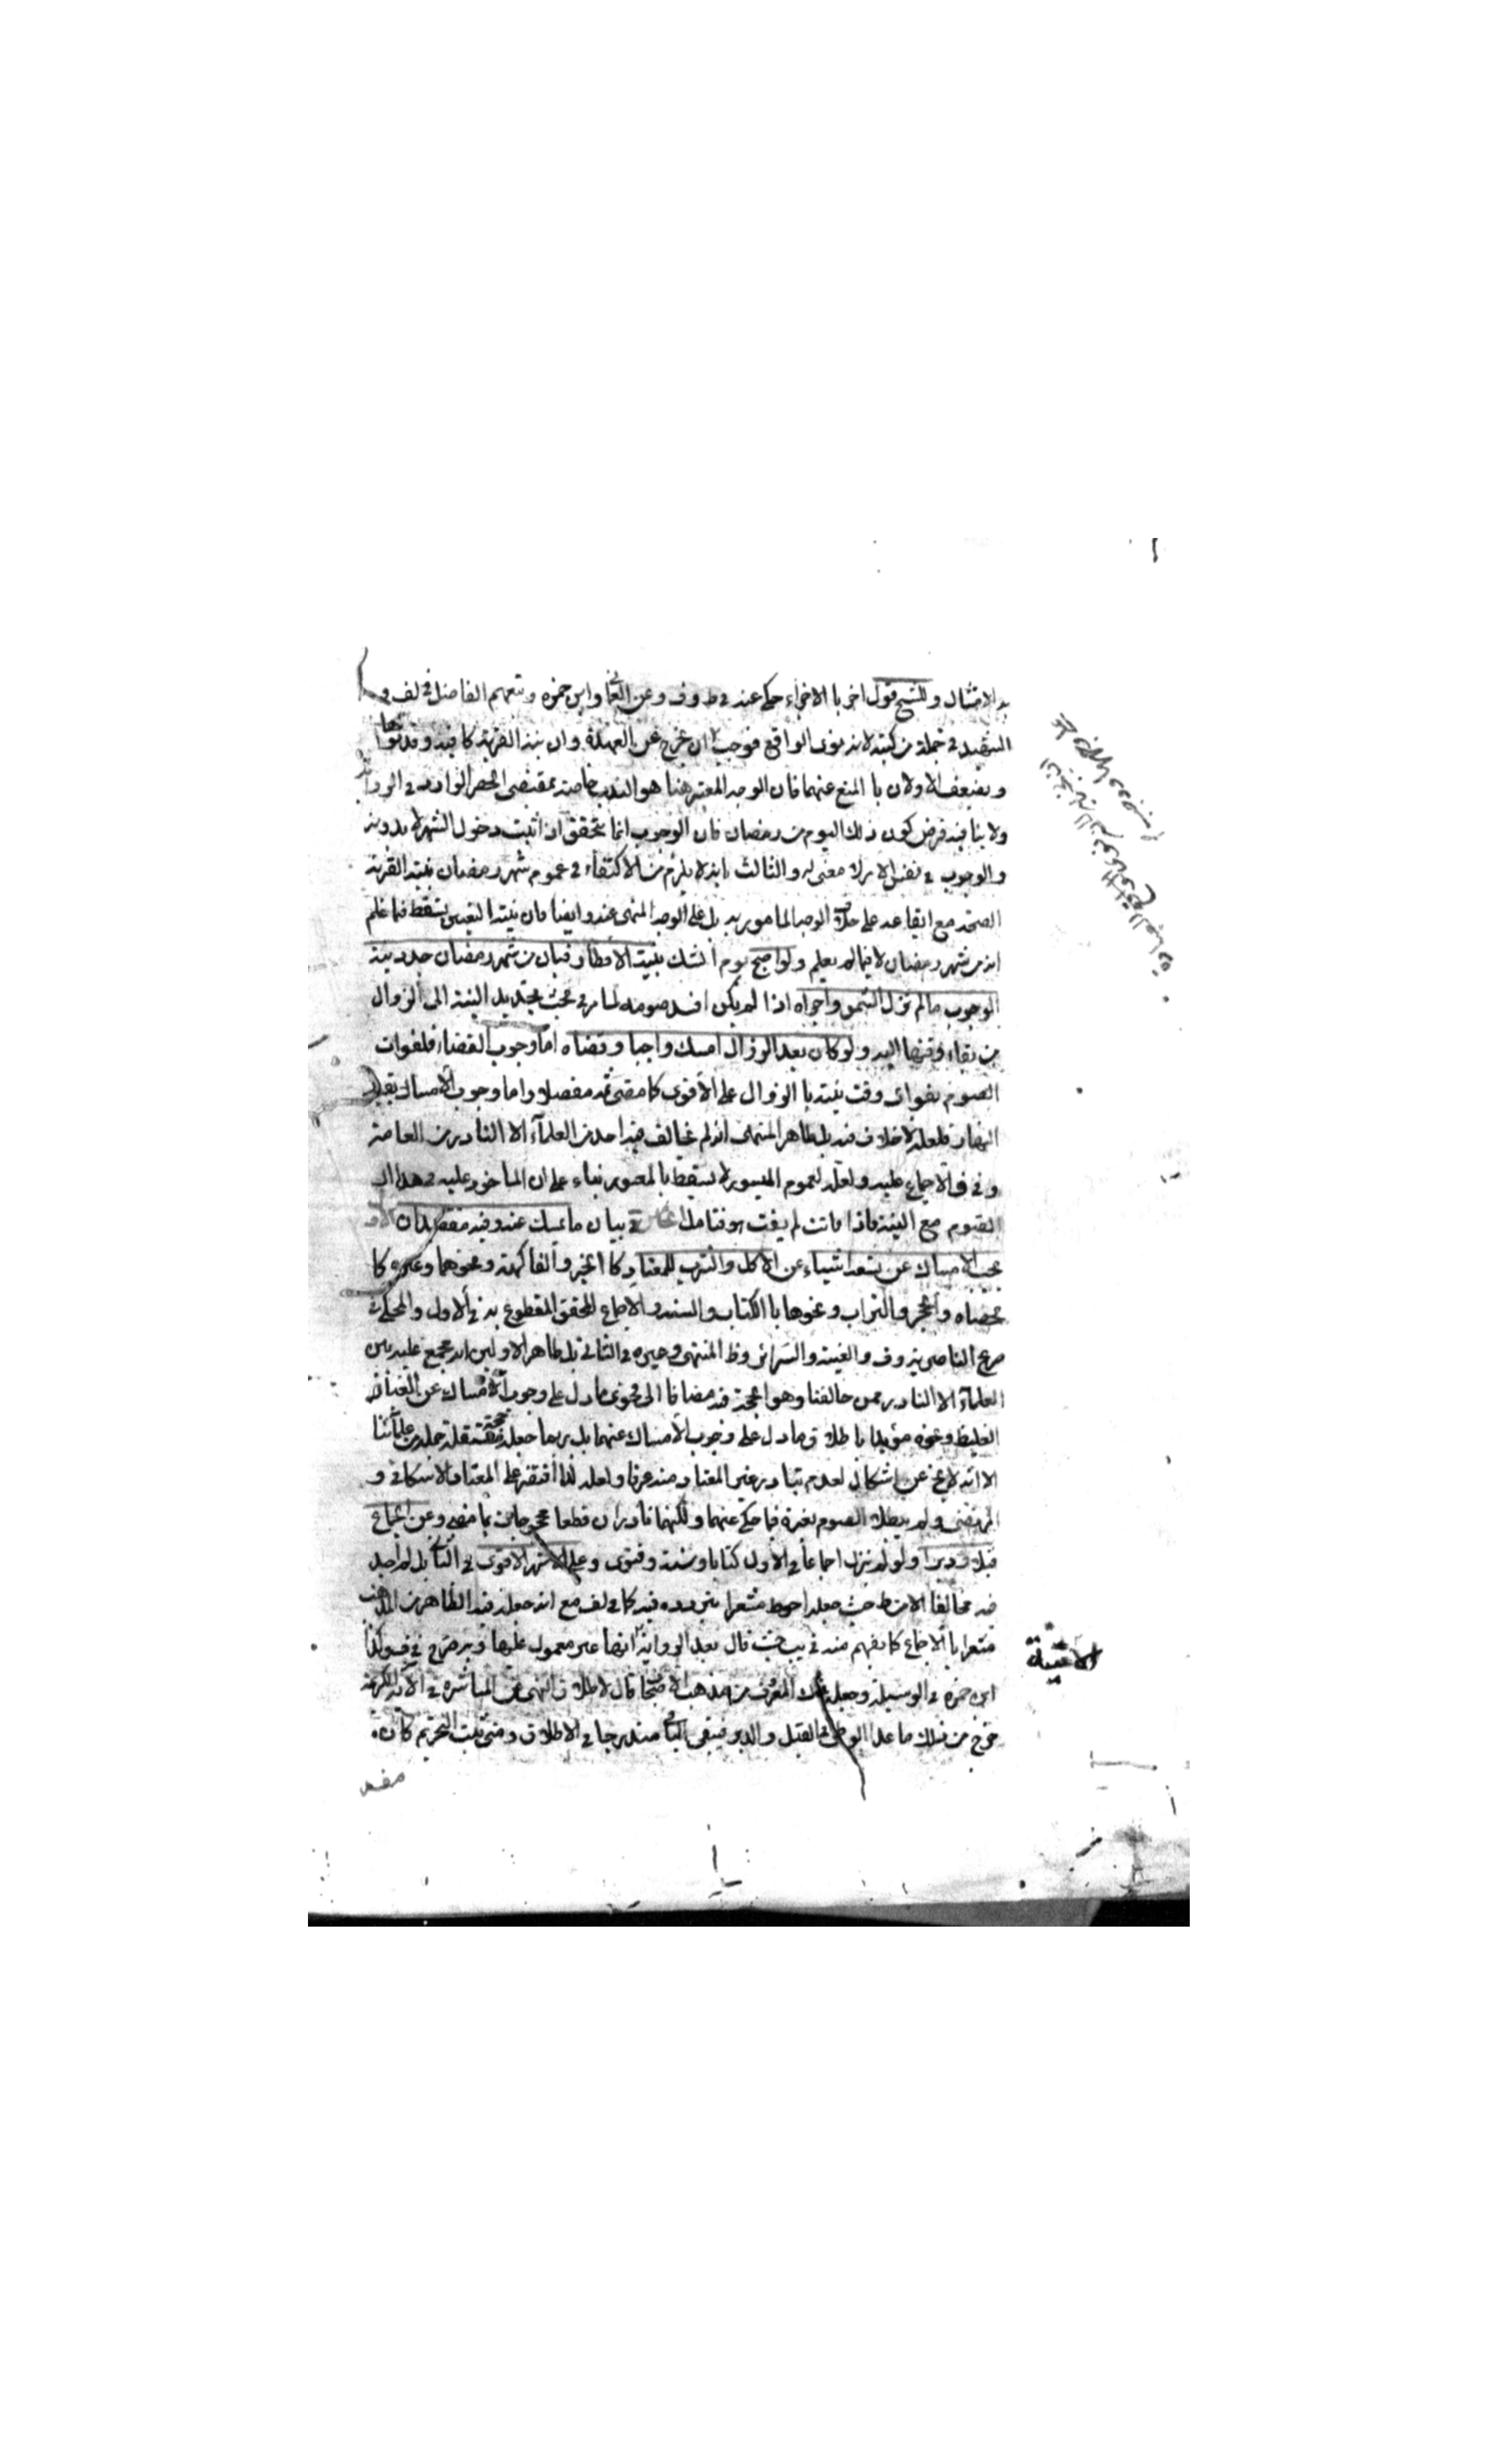 به الامتثال وللشيخ قول اخر با الاجزاء حكي عنه في ط وف وعن العما وابن حمزه وتبعهم الفاضل في لف و
الشهيد في جملة من كتبه لانه نوى الواقع فوجب ان يخرج عن العهدة وان نية القربة كافيه وقد نواها
ويضعف الاولان با المنع عنهما فان الوجه المعتبر هنا هو الندب خاصة بمقتضى الحصر الوارد في الروا
ولا ينافيه فرض كون ذلك اليوم من رمضان فان الوجوب انما يتحقق اذا ثبت دخول الشهر لا بدونه
والوجوب في نفس الامر لا معنى له والثالث بانه لا يلزم من الاكتفاء في صوم شهر رمضان بنية القربة
الصحة مع ايقاعه على خلاف الوجه المامور به بل على الوجه المنهى عنه وايضا فان نية التعيين تسقط فيما علم
انه من شهر رمضان لا فيما لم يعلم ولو اصبح يوم الشك بنية الافطار فبان من شهر رمضان جدد نية
الوجوب ما لم تزل الشمس واجزاه اذا لم يكن افسد صومه لما مر في بحث تجديد النية الى الزوال
من بقاء وقتها اليه ولو كان بعد الزوال امسك واجبا وقضاه اما وجوب القضاء فلفوات
الصوم بفوات وقت نيته با الزوال على الاقوى كما مضى ثمه مفصلا واما وجوب الامساك بقية
النهار فلعله لا خلاف فيه بل ظاهر المنتهى انه لم يخالف فيه احد من العلماء الا النادر من العامة
وفي ف الاجماع عليه ولعله لعموم الميسور لا يسقط با المعسور بناء على ان الماخوذ عليه في هذا ال
الصوم مع النية فاذا فاتت لم يفت هو فتامل في بيان ما يمسك عنه وفيه مقصدان الاو
يجب الامساك عن تسعة اشياء عن الاكل والشرب للمعتاد كا الخبز والفاكهة ونحوهما وغيره كا
لحصاه والحجر والتراب ونحوها با الكتاب والسنة والاجماع المحقق المقطوع به في الاول والمحكى في
صريح الناصرية وف والغنية والسرائر وظ المنتهى وغيره في الثاني بل ظاهر الاولين انه مجمع عليه بين
العلماء الا النادر ممن خالفنا وهو الحجة فيه مضافا الى فحوى ما دل على وجوب الامساك عن الغبار
الغليظ ونحوه مؤيدا باطلاق ما دل على وجوب الامساك عنهما بل ربما جعله حجة مستقلة جملة من علمائنا
الا انه لا يخ عن اشكال لعدم تبادر غير المعتاد منه عرفا ولعله لذا افتقر على المعتاد الاسكافي و
المرتضى ولم يبطلا الصوم بغيره فيما حكي عنهما ولكنهما نادران قطعا محجوجان بما مضى وعن الجماع
قبلا ودبرا ولو لم ينزل اجماعا في الاول كتابا وسنة وفتوى وعلى الاشهر الاقوى في الثاني بل لم اجد
فيه مخالفا الا في ط حيث جعله احوط مشعرا بتردده فيه كما في لف مع انه جعله فيه الظاهر من المذهب
مشعرا با الاجماع كما يفهم منه في يب حيث قال بعد الرواية انها غير معمول عليها وبه صرح في ف وكذا
ابن حمزه في الوسيلة وجعله المعروف من مذهب الاصحاب قال لاطلاق النهى عن المباشرة في الآية الكريمة
خرج من ذلك ما عدا الوطى في القبل والدبر فيبقى الباقي مندرجا في الاطلاق ومتى ثبت التحريم كان
مفسد